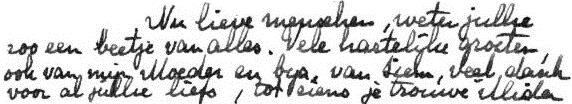 Nu lieve menschen, weten jullie
zoo een beetje van alles. Vele hartelijke groeten
ook van mijn Moeder en bijz. van Siem, veel dank
voor al jullie liefs, tot ziens je trouwe Mida